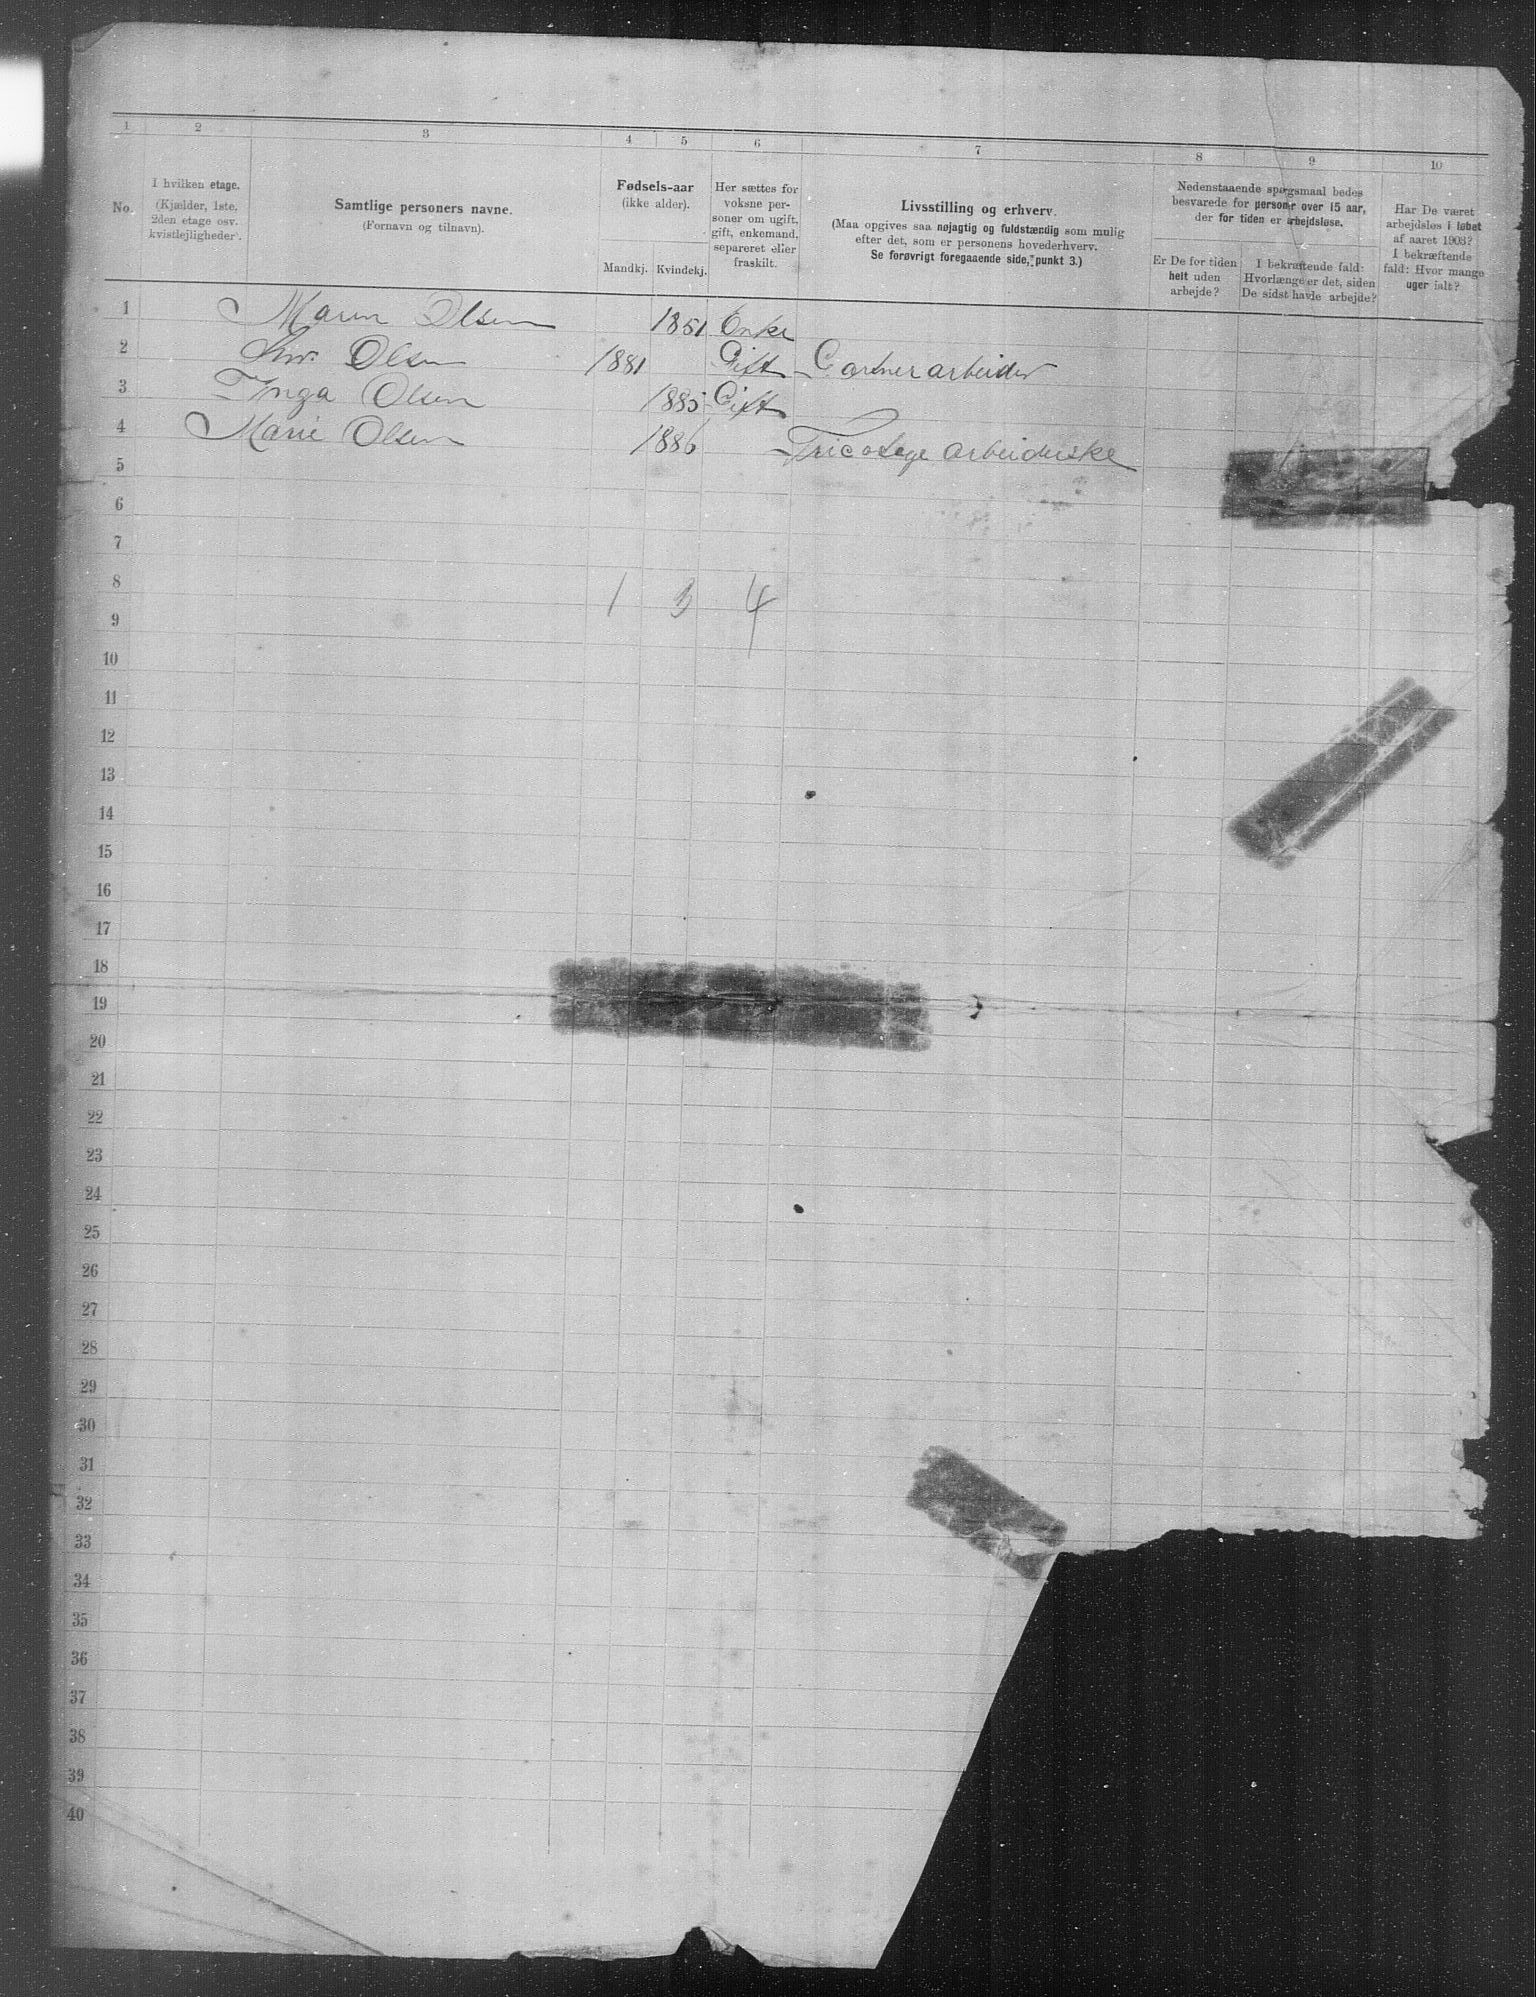 1 2 3 4 5 6 7 8 9 10
No.
I hvilken etage.
(Kjælder, 1ste,
2den etage osv.
kvistlejligheder).
Samtlige personers navne.
(Fornavn og tilnavn).
Fødsels-aar
(ikke alder).
Mandkj. Kvindekj.
Her sættes for
voksne per-
soner om ugift,
gift, enkemand,
separeret eller
fraskilt.
Livsstilling og erhverv.
(Maa opgives saa nøjagtig og fuldstændig som mulig
efter det, som er personens hovederhverv.
Se forøvrigt foregaaende side, punkt 3.)
Nedenstaaende spørgsmaal bedes
besvarede for personer over 15 aar,
der for tiden er arbejdsløse.
Er De for tiden
helt uden
arbejde?
I bekræftende fald:
Hvorlænge er det, siden
De sidst havde arbejde?
Har De været
arbejdsløs i løbet
af aaret 1903?
I bekræftende
fald: Hvor mange
uger ialt?
1 Maren Olsen 1851 Enke
2 Olsen 1881 Gift Gartnerarbeider
3 Inga Olsen 1885 Gift
4 Marie Olsen 1886 Tricotage arbeiderske
5
6
7
8 1 3 4
9
10
11
12
13
14
15
16
17
18
19
20
21
22
23
24
25
26
27
28
29
30
31
32
33
34
35
36
37
38
39
40